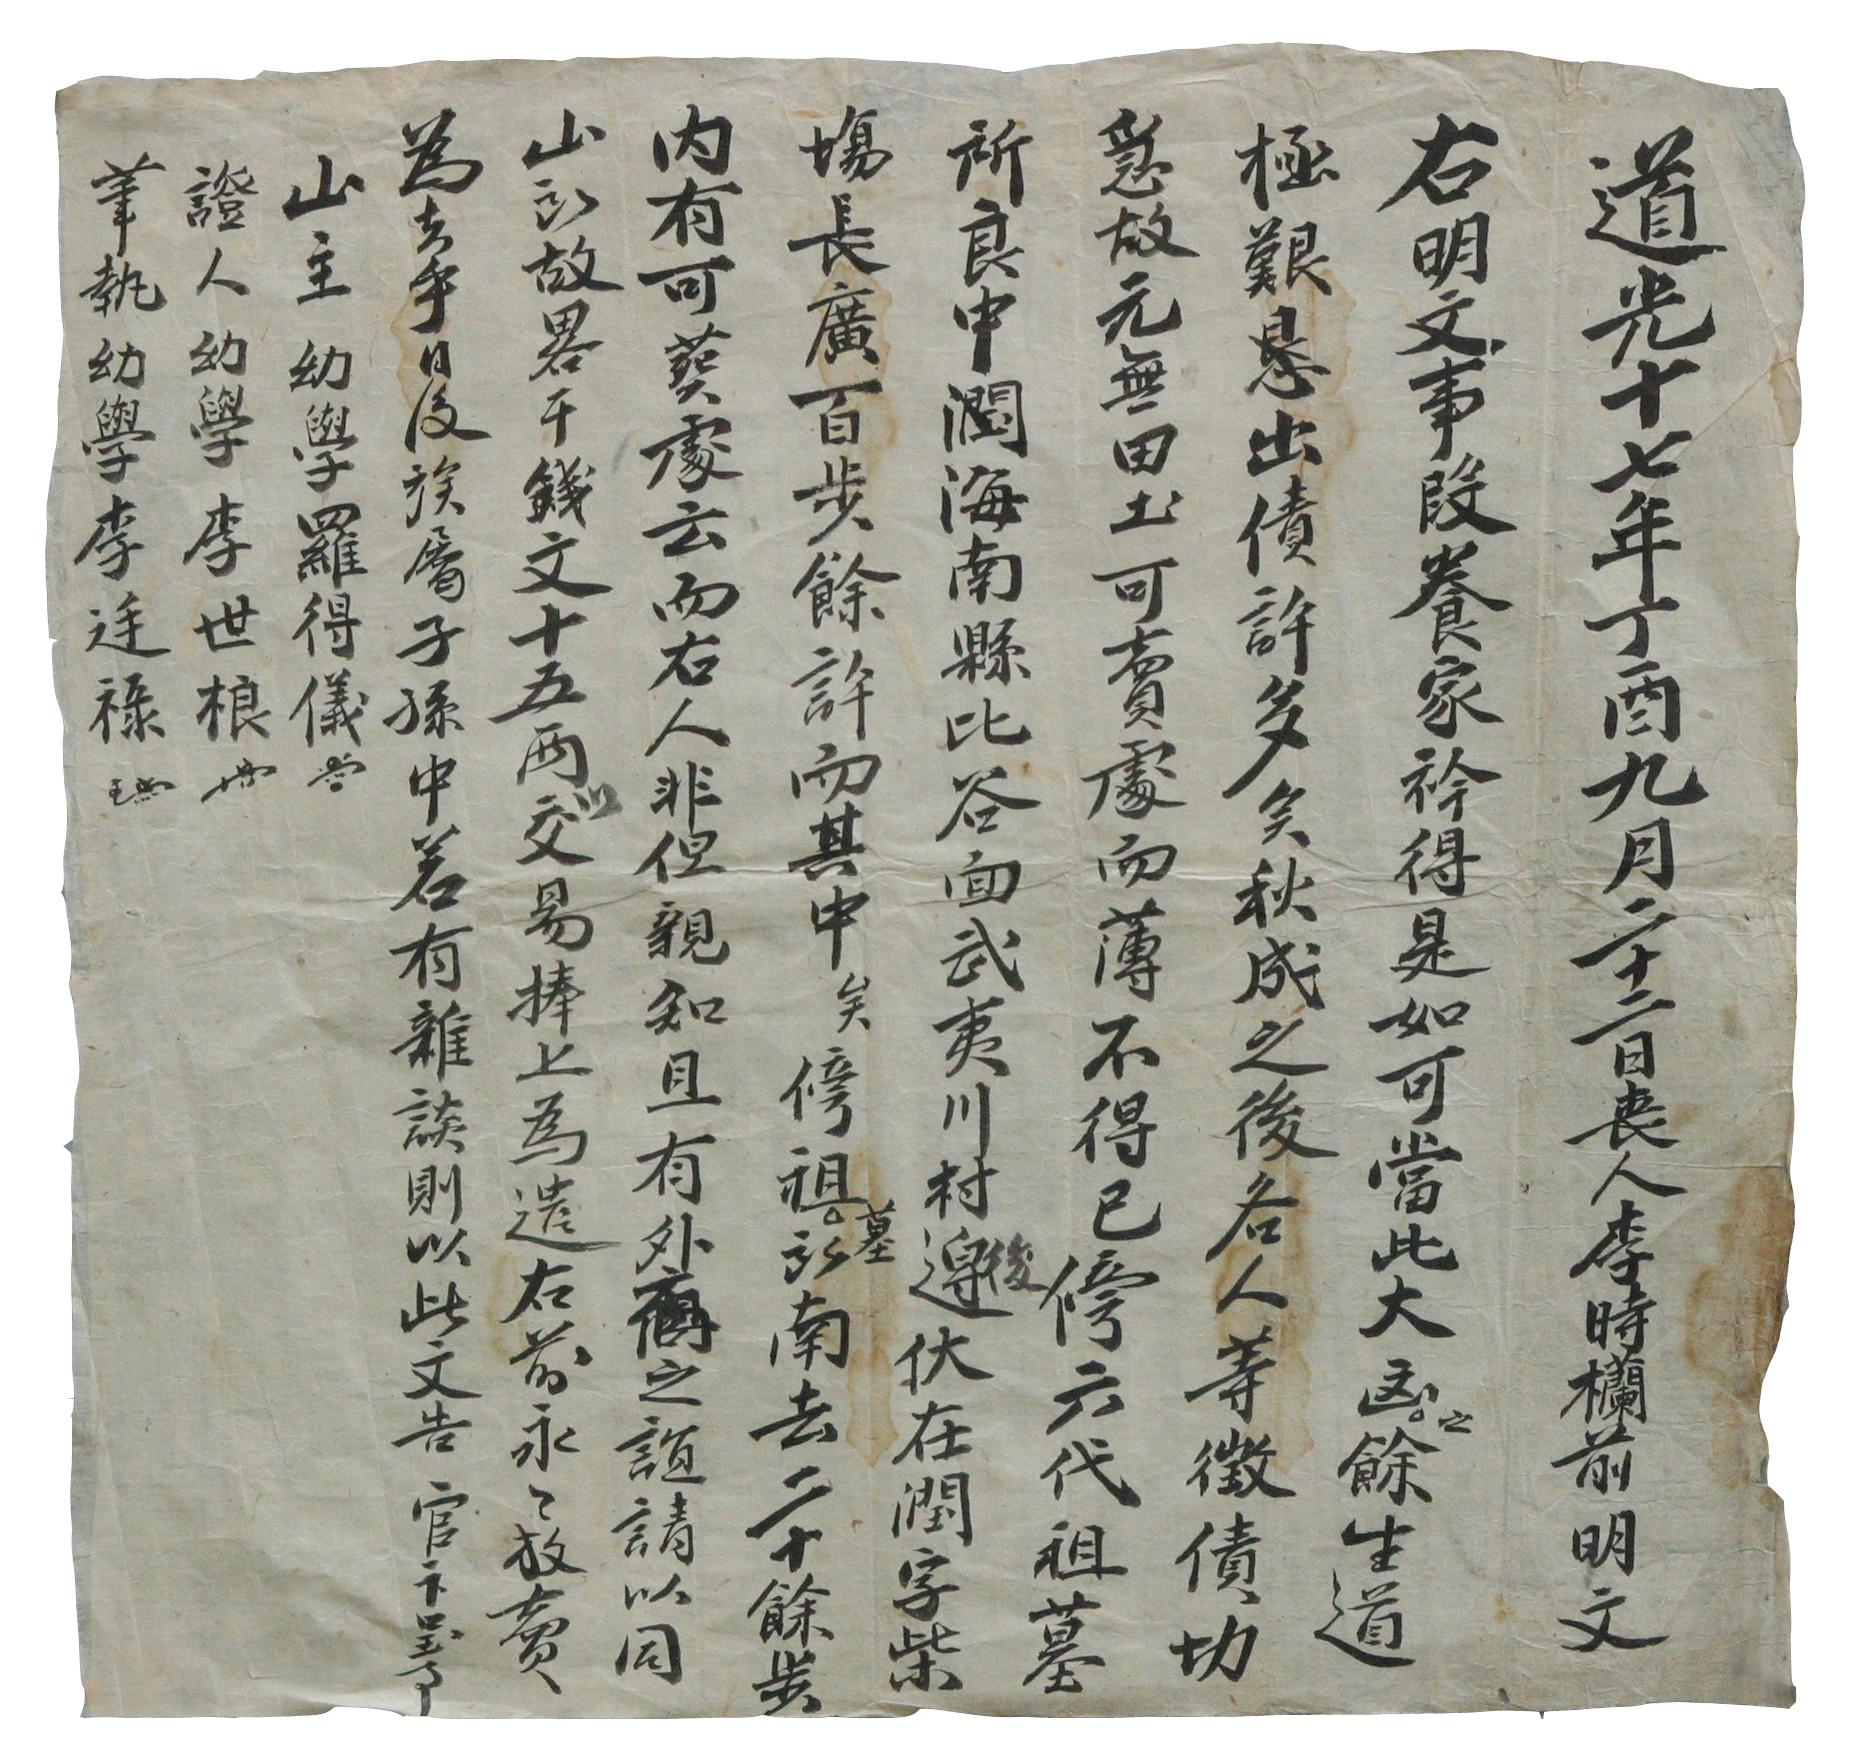 道光十七年丁酉九月二十二日喪人李時欄前明文
右明文事段養家衿得是如可當此大凶之餘生道
極艱悬出債許多矣秋成之後各人等徵債功
急故元無田土可賣處而薄不得已傍六代祖墓
所良中潤海南縣比谷面武夷川村後邊伏在潤字柴
場長廣百步餘許而其中矣傍祖墓南去二十餘步
内有可葬處云而右人非但親知且有外之誼請以同
山故畧干錢文十五兩以交易捧上為遣右前永々放賣
為去乎日後族屬子孫中若有雜談則以此文告官卞呈事
山主幼學羅得儀
證人幼學李世桹
筆執幼學李廷祿